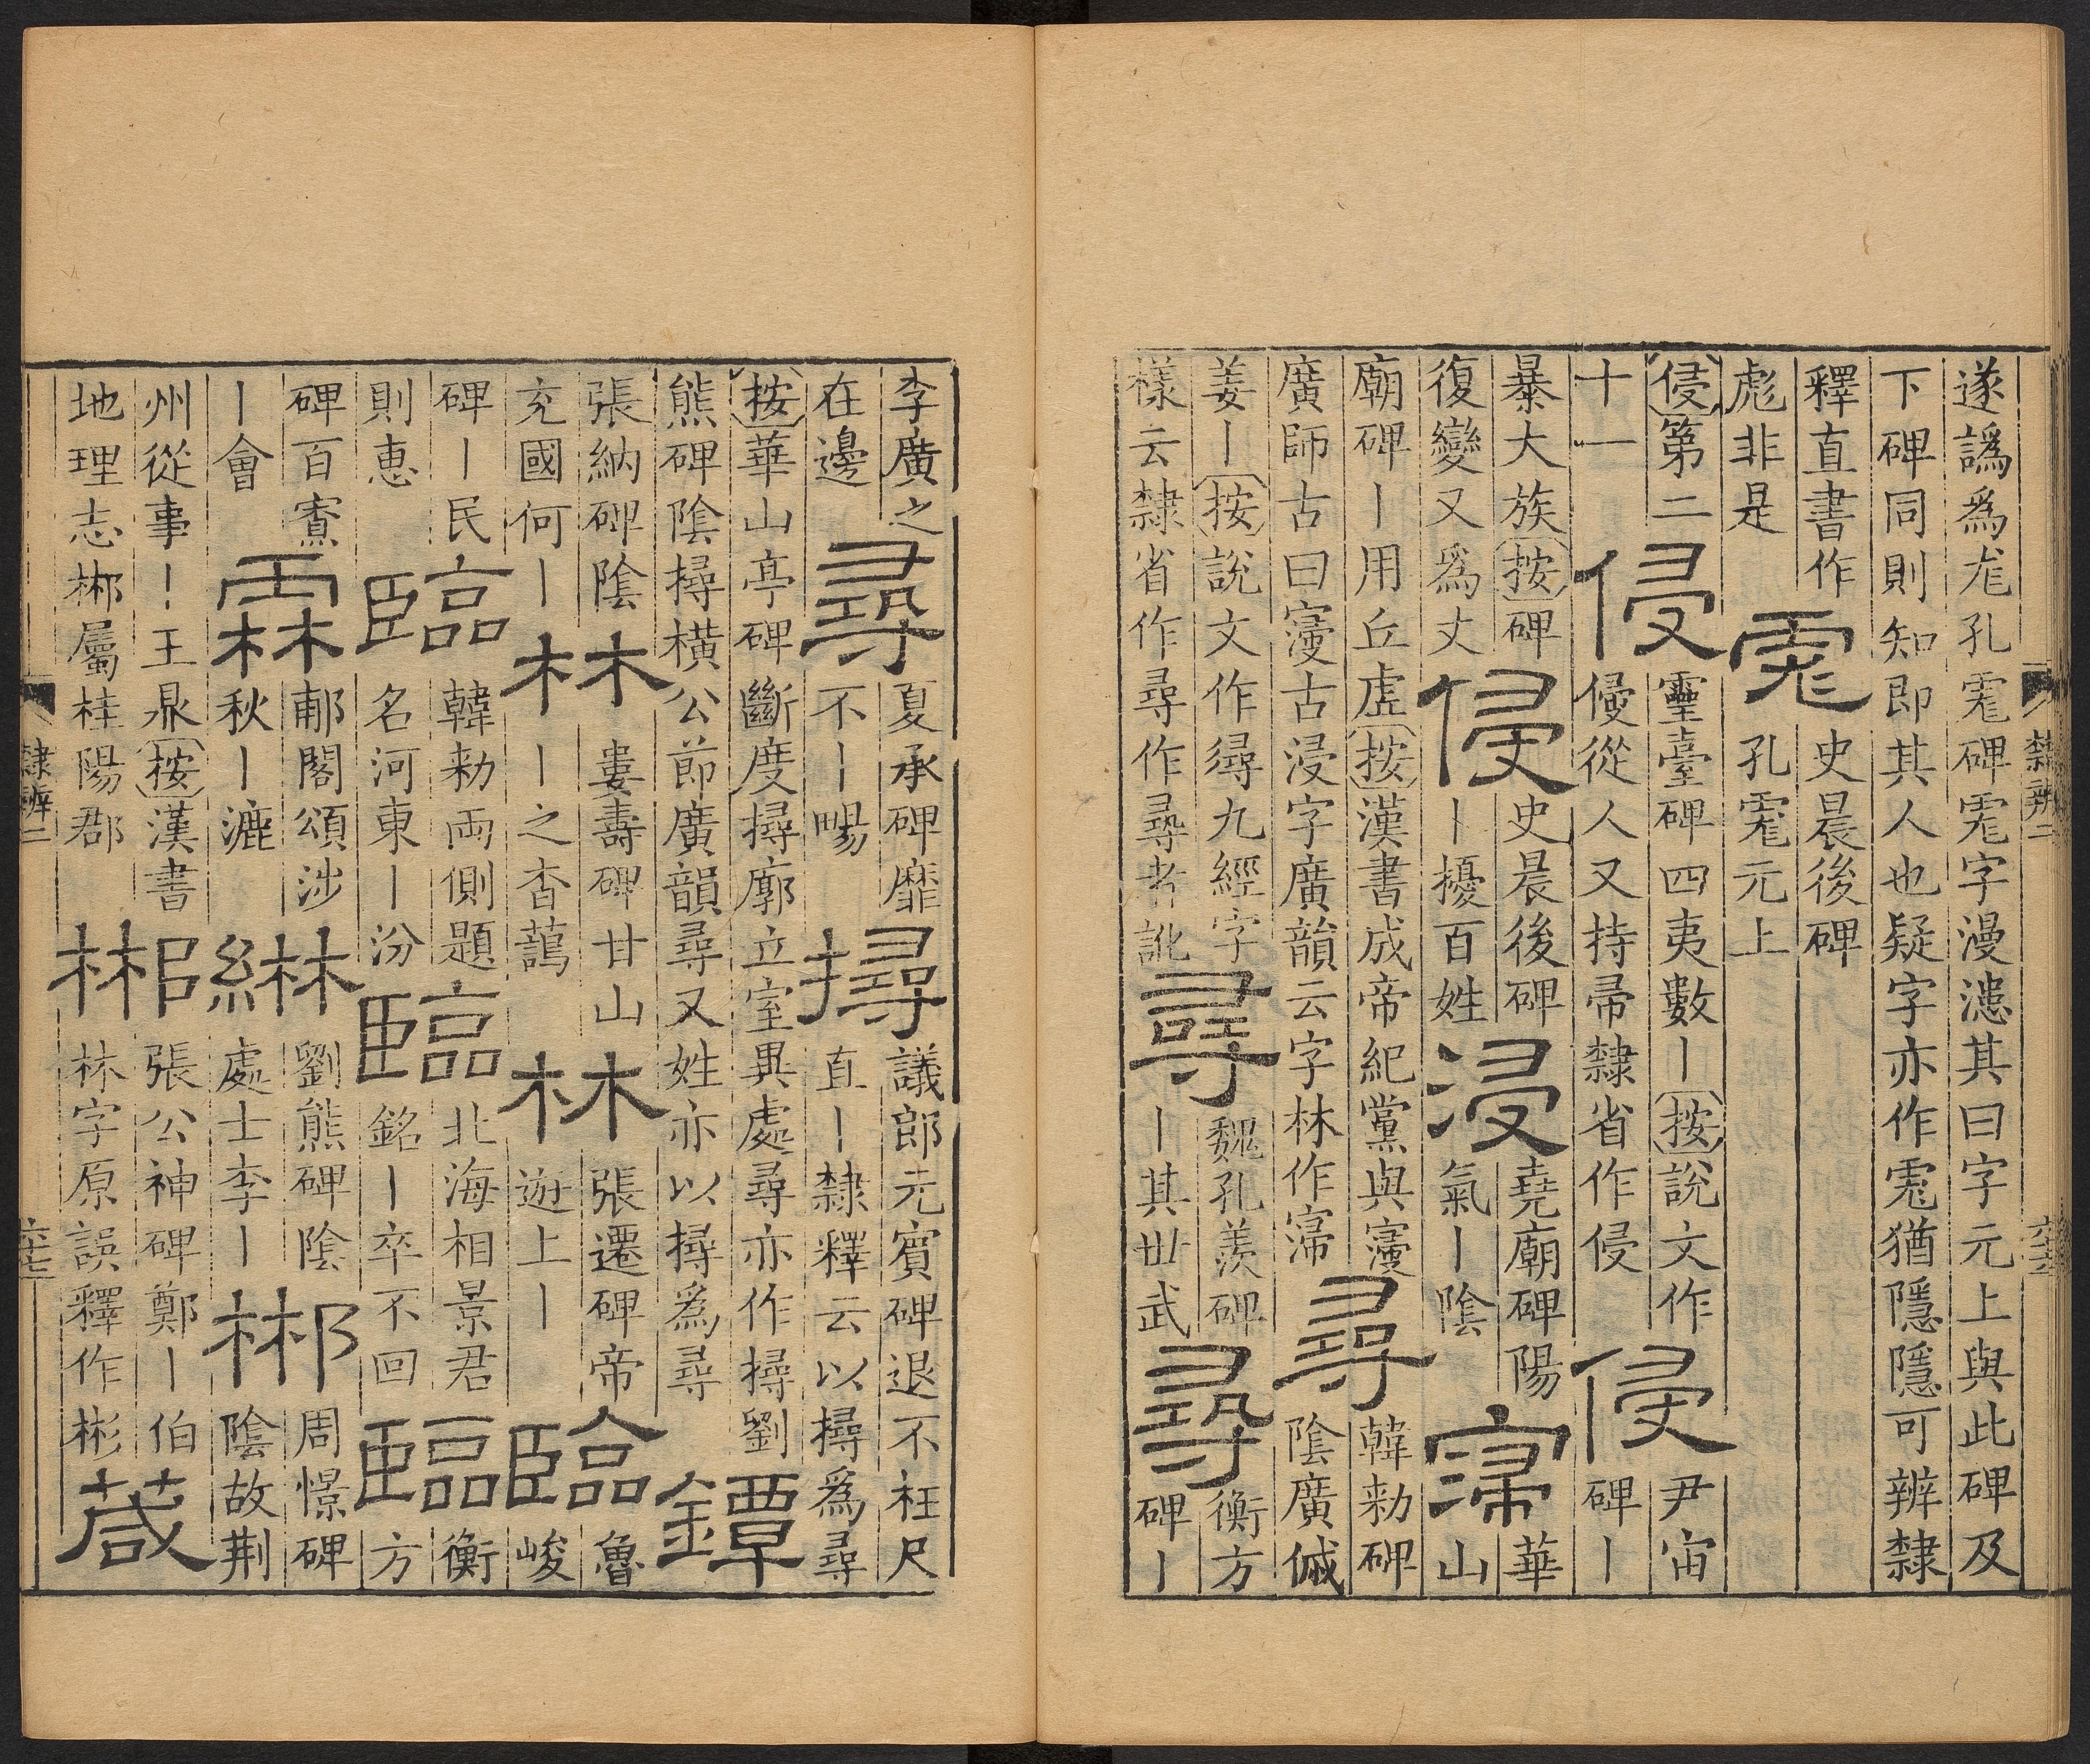 遂譌爲尨孔雿碑雿字漫漶其曰字元上與此碑及
下碑同則知卽其人也疑字亦作雿猶隱隱可辨隸
釋直書作
彪非是
雿
史晨後碑
孔雿元上
侵第二
十一
侵
靈臺碑四夷數丨按說文作
㑴從人又持帚隸省作侵
侵
尹宙
碑丨
暴大族按碑
復變又爲丈
侵
史晨後碑
丨擾百姓
浸
堯廟碑陽
氣丨陰
寖
華
山
廟碑丨用丘虛按漢書成帝紀黨與寖
廣師古曰寖古浸字廣韻云字林作
尋
韓勑碑
陰廣
姜丨按說文作㝷九經字
樣云隸省作尋作㝷者訛
尋
魏孔羨碑
丨其世武
尋
衡方
碑丨
隸辨二
李廣之
在邊
尋
夏承碑靡
不丨暘
撏
議郎元賓碑退不枉尺
直丨隸釋云以撏爲尋
按華山亭碑斷度撏廓立室異處尋亦作撏劉
熊碑陰撏橫公節廣韻尋又姓亦以撏爲尋
鐔
張納碑陰
充國何丨
林
婁壽碑甘山
丨之杳藹
林
張遷碑帝
遊上丨
臨
魯
峻
碑丨民
則惠
臨
韓勑兩側題
名河東丨汾
臨
北海相景君
銘丨卒不回
臨
衡
方
碑百寮
丨會
霖
郙閣頌涉
秋丨漉
綝
劉熊碑陰
處士李丨
郴
周憬碑
陰故荆
州從事丨王鼎按漢書
地理志郴屬桂陽郡
郴
張公神碑鄭丨伯
林字原誤釋作彬
葴
隸辨二
六十七